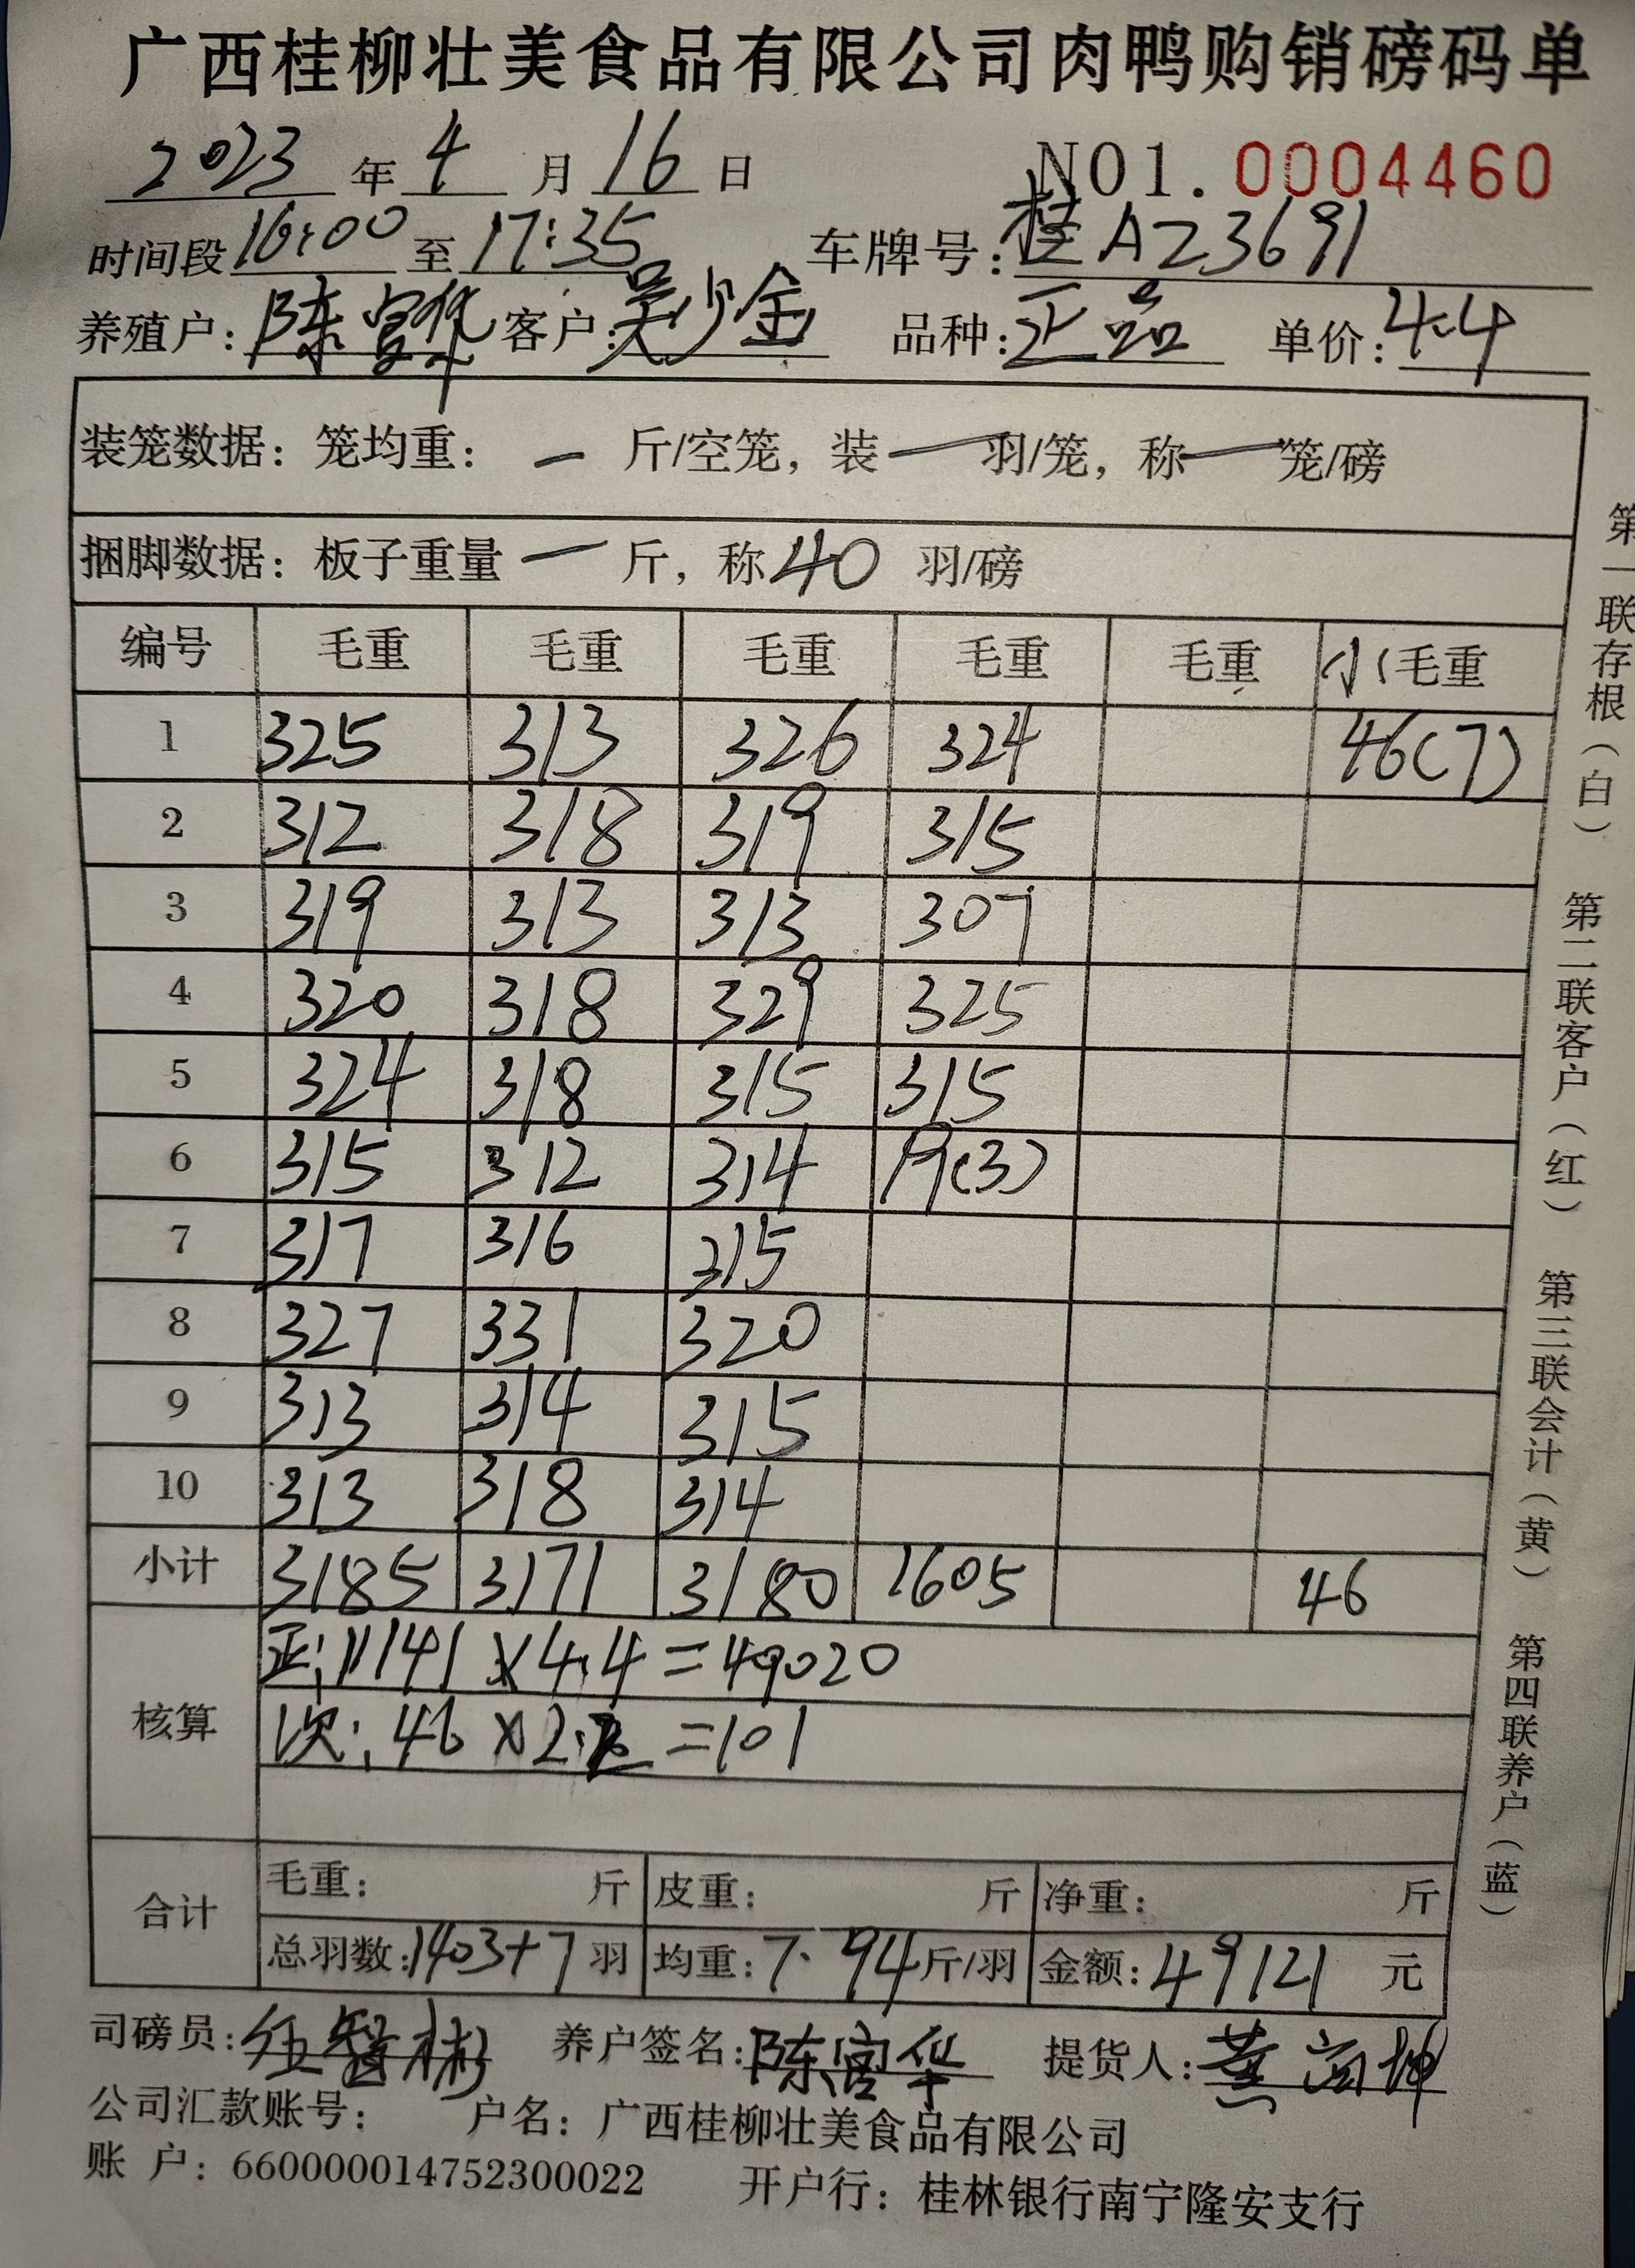 广西桂柳壮美食品有限公司肉鸭购销磅码单
2023 年 4 月 16 日 NO1. 0004460
时间段 16:00 至 17:35 车牌号: 桂A23691
养殖户: 陈富华 客户: 吴少金 品种: 正品 单价: 4.4
装笼数据: 笼均重: — 斤/空笼, 装 — 羽/笼, 称 — 笼/磅
捆脚数据: 板子重量 — 斤, 称 40 羽/磅
编号 毛重 毛重 毛重 毛重 毛重 小毛重
1 325 313 326 324 46(7)
2 312 318 319 315
3 319 313 313 307
4 320 318 329 325
5 324 318 315 315
6 315 312 314 19(3)
7 317 316 315
8 327 331 320
9 313 314 315
10 313 318 314
小计 3185 3171 3180 1605 46
核算
正: 11141 X 4.4 = 49020
次: 46 X 2.2 = 101
合计
毛重: 斤 皮重: 斤 净重: 斤
总羽数: 1403+7 羽 均重: 7.94 斤/羽 金额: 49121 元
司磅员: 伍智彬 养户签名: 陈富华 提货人: 黄
公司汇款账号: 户名: 广西桂柳壮美食品有限公司
账 户: 660000014752300022 开户行: 桂林银行南宁隆安支行
第一联存根(白) 第二联客户(红) 第三联会计(黄) 第四联养户(蓝)